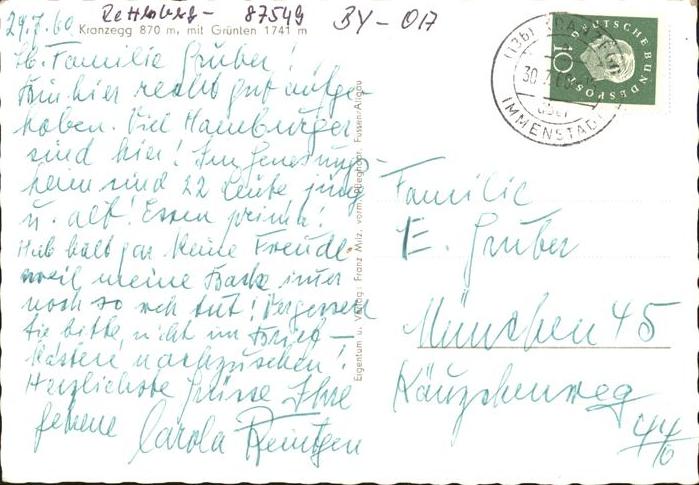 29.7.60 Rettenberg- 87549 BY-OA
Kranzegg 870 m, mit Grünten 1741 m
Lb. Familie Gruber!
Bin hier recht gut aufge-
hoben. Viel Hamburger
sind hier! Im Genesungs-
heim sind 22 Leute jung
u. alt! Essen prima!
Hab halt gar keine Freude
weil meine Backe immer
noch so weh tut! Vergessen
Sie bitte nicht im Brief-
kasten nachzusehen!
Herzlichste Grüsse Ihre
Carola
Eigentum u. Verlag: Franz Milz, vorm. Füssen/Allgäu
DEUTSCHE BUNDESPOST
10
(13b) KRANZEGG
30.7.60
über
IMMENSTADT
Familie
E. Gruber
München 45
Käuzchenweg
44/0